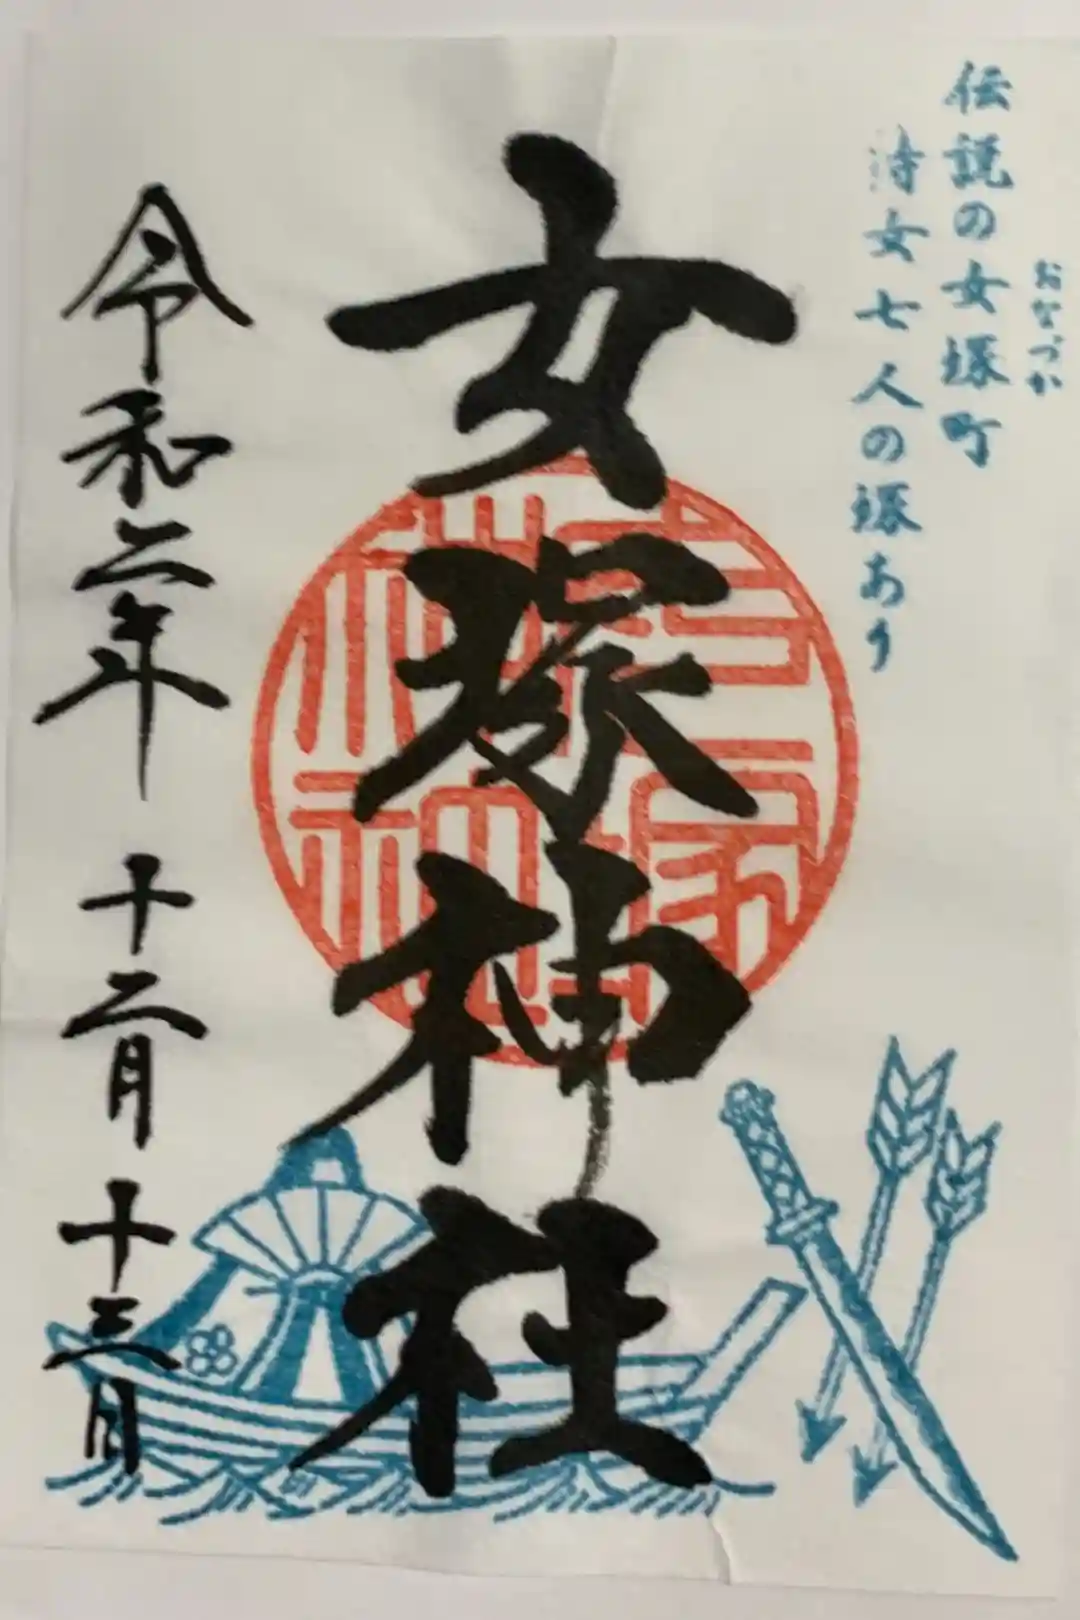 おなづか
伝説の女塚町
侍女七人の塚あり
女塚神社
女塚神社
令和二年 十二月 十三日